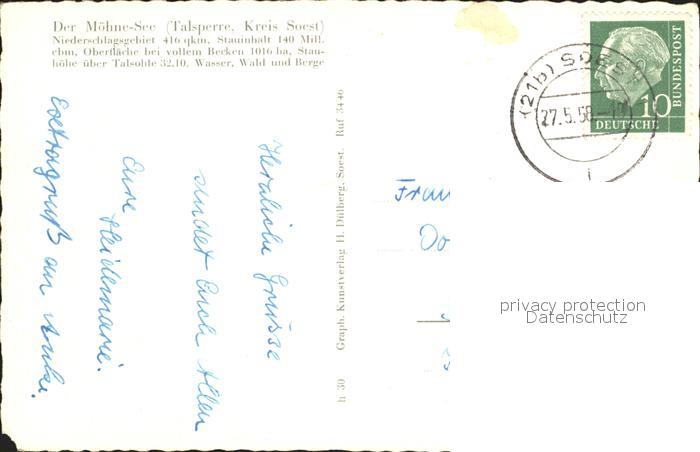 Der Möhne-See (Talsperre, Kreis Soest)
Niederschlagsgebiet 416 qkm, Stauinhalt 140 Mill.
cbm, Oberfläche bei vollem Becken 1016 ha, Stau-
höhe über Talsohle 32.10. Wasser, Wald und Berge
Herzliche Grüsse
sendet Euch Allen
Eure
Heidemarie.
Extragruß an
h 30 Graph. Kunstverlag H. Dülberg, Soest. Ruf 3446
(21b) SOEST
27.5.58
10
DEUTSCHE
BUNDESPOST
Frau
privacy protection
Datenschutz